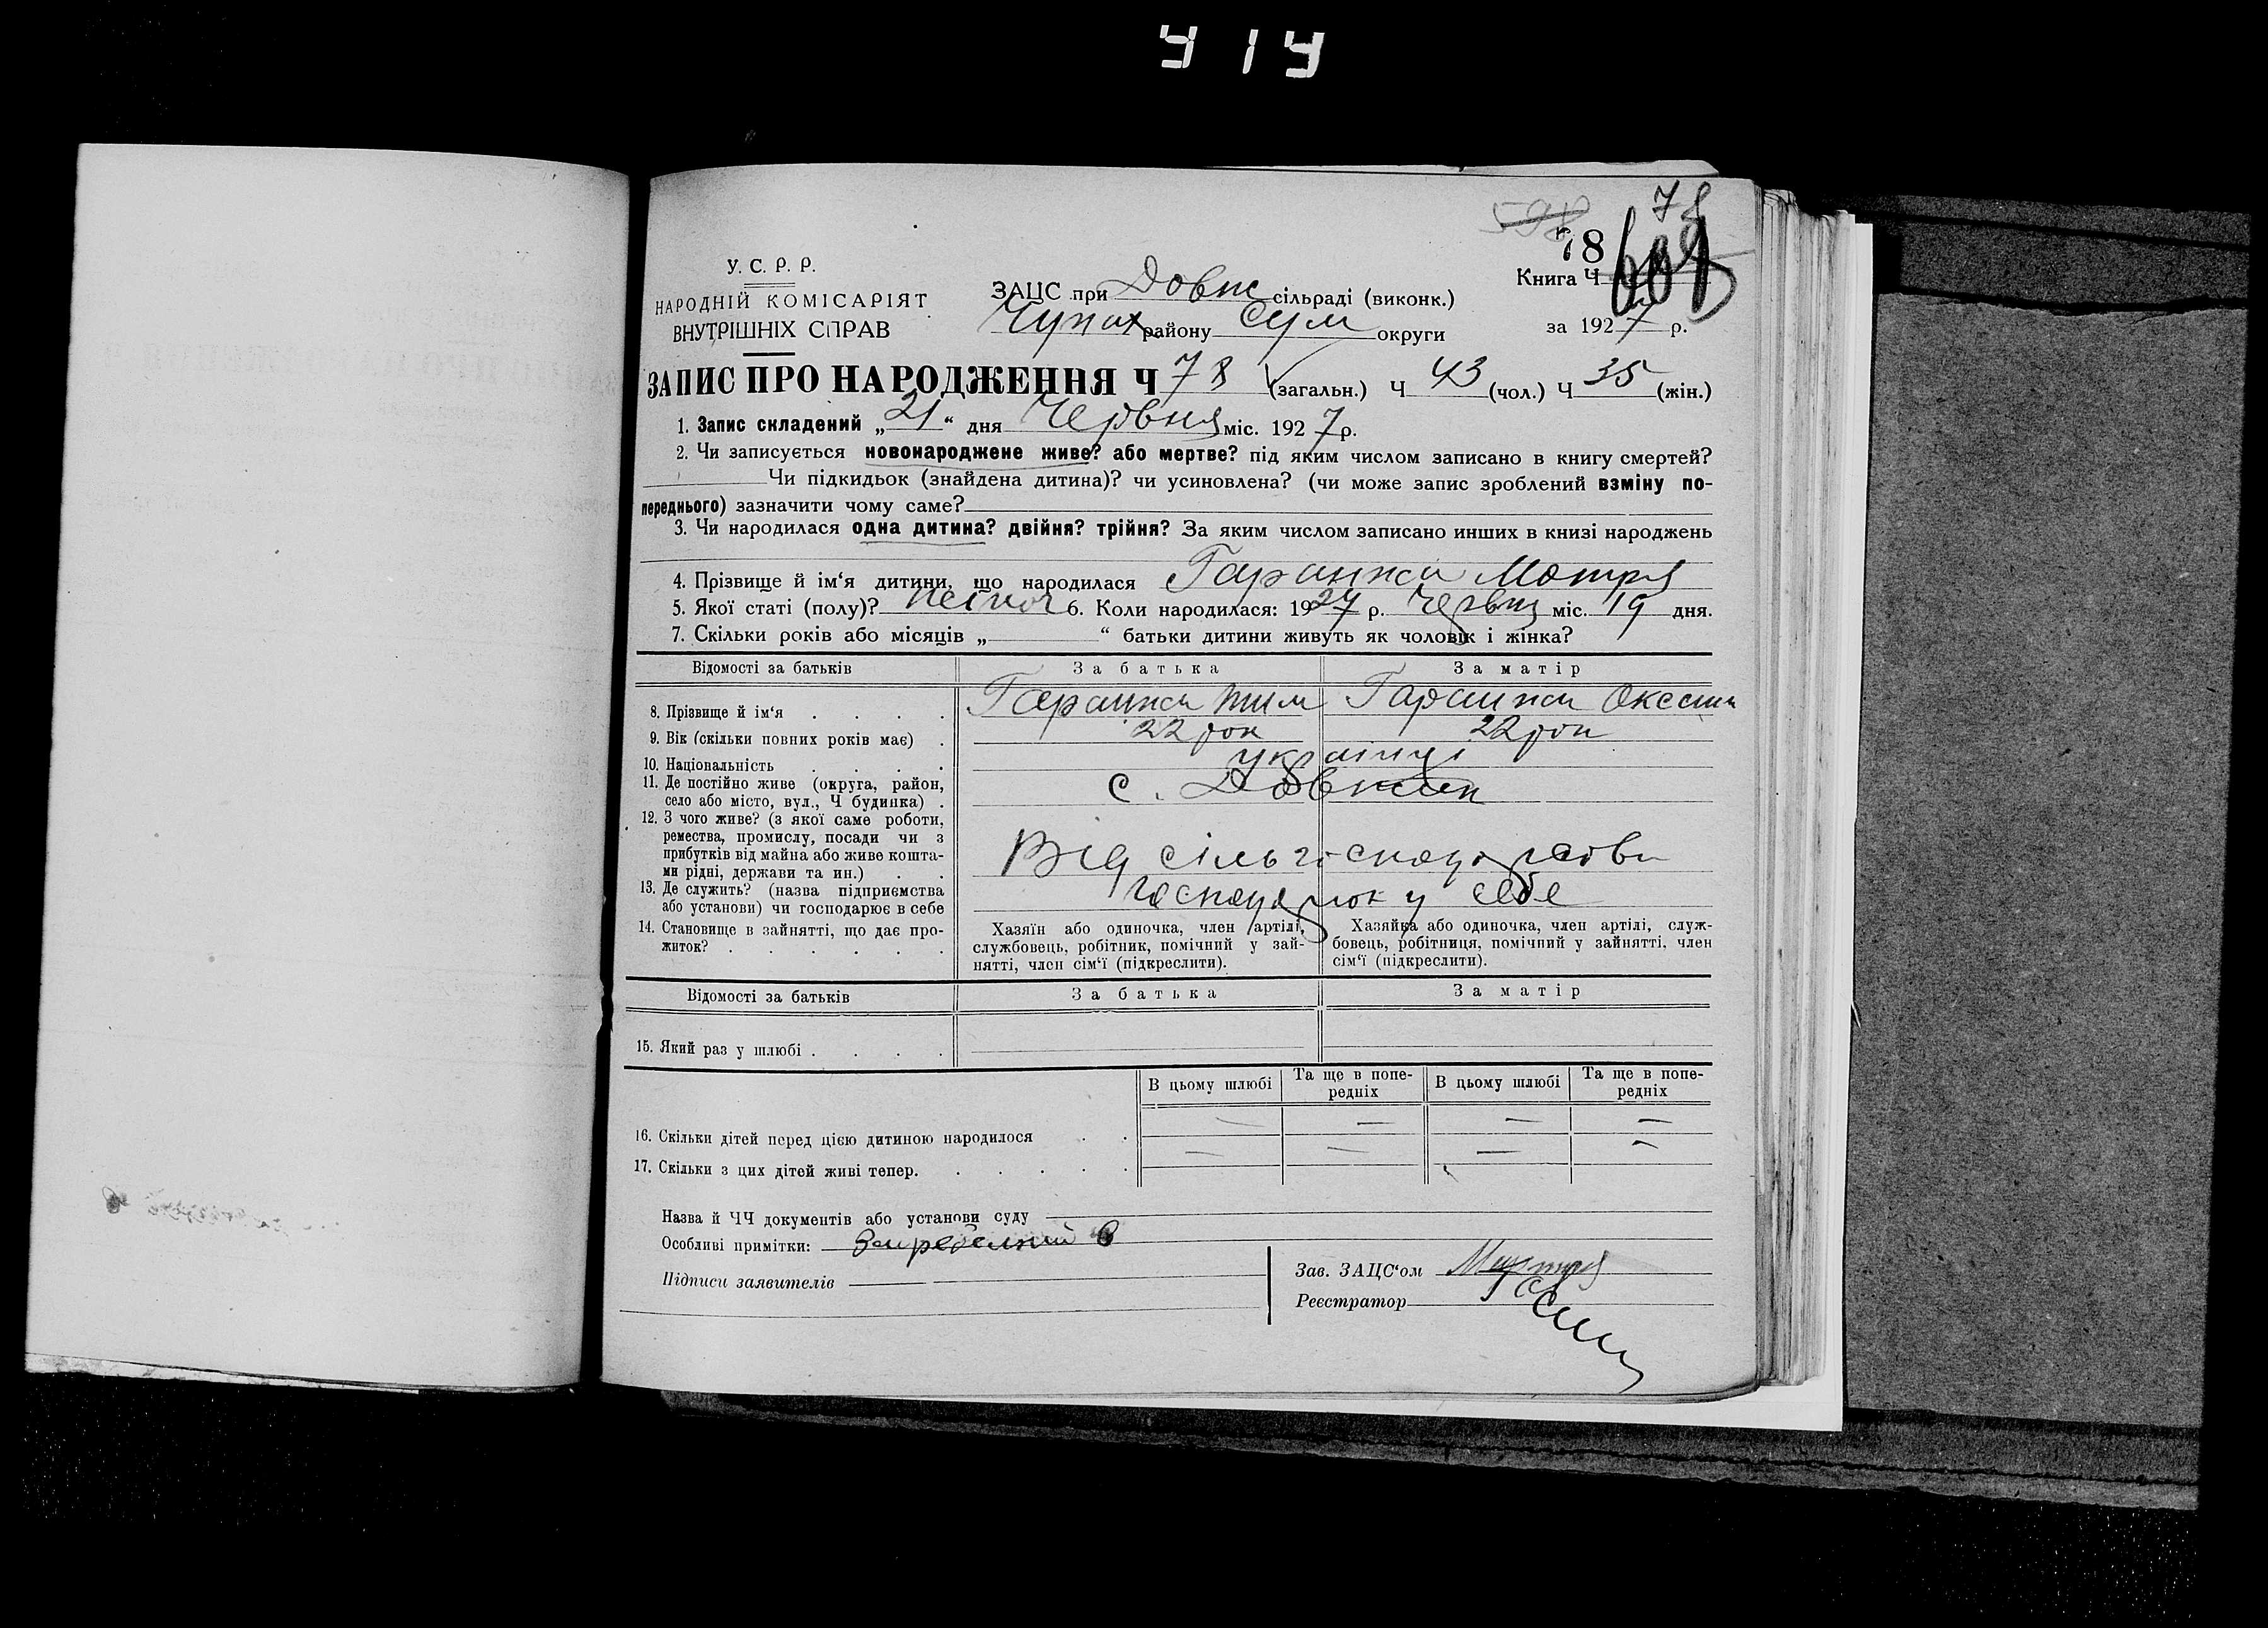 414
78
598
78
601
У. С. Р. Р.
НАРОДНІЙ КОМІСАРІЯТ
ВНУТРІШНІХ СПРАВ
ЗАЦС при Довж сільраді (виконк.)
Чупах району Сум округи
Книга Ч
за 1927 р.
ЗАПИС ПРО НАРОДЖЕННЯ Ч 78 (загальн.) Ч 43 (чол.) Ч 35 (жін.)
1. Запис складений „21“ дня Червня міс. 1927 р.
2. Чи записується новонароджене живе? або мертве? під яким числом записано в книгу смертей?
Чи підкидьок (знайдена дитина)? чи усиновлена? (чи може запис зроблений взміну по-
переднього) зазначити чому саме?
3. Чи народилася одна дитина? двійня? трійня? За яким числом записано инших в книзі народжень
4. Прізвище й ім‘я дитини, що народилася Гаранжа Мотря
5. Якої статі (полу)? жіноч 6. Коли народилася: 1927 р. Червня міс. 19 дня.
7. Скільки років або місяців „ “ батьки дитини живуть як чоловік і жінка?
Відомості за батьків За батька За матір
8. Прізвище й ім‘я . . . . Гаранжа Тим Гаранжа Оксана
9. Вік (скільки повних років має) . 22 рок 22 рок
10. Національність . . . . українці
11. Де постійно живе (округа, район,
село або місто, вул., Ч будинка) . с. Довжик
12. З чого живе? (з якої саме роботи,
ремества, промислу, посади чи з
прибутків від майна або живе кошта-
ми рідні, держави та ин.) . . Від сільгосподарства
13. Де служить? (назва підприємства
або установи) чи господарює в себе господарюн у себе
14. Становище в зайнятті, що дає про-
житок? . . . . . .
Хазяїн або одиночка, член артілі,
службовець, робітник, помічний у зай-
нятті, член сім‘ї (підкреслити).
Хазяйка або одиночка, член артілі, служ-
бовець, робітниця, помічний у зайнятті, член
сім‘ї (підкреслити).
Відомості за батьків За батька За матір
15. Який раз у шлюбі . . . .
В цьому шлюбі Та ще в попе-
редніх В цьому шлюбі Та ще в попе-
редніх
16. Скільки дітей перед цією дитиною народилося . . — — — —
17. Скільки з цих дітей живі тепер. . . . . . — — — —
Назва й ЧЧ документів або установи суду
Особливі примітки:
Підписи заявителів
Зав. ЗАЦС‘ом
Реєстратор